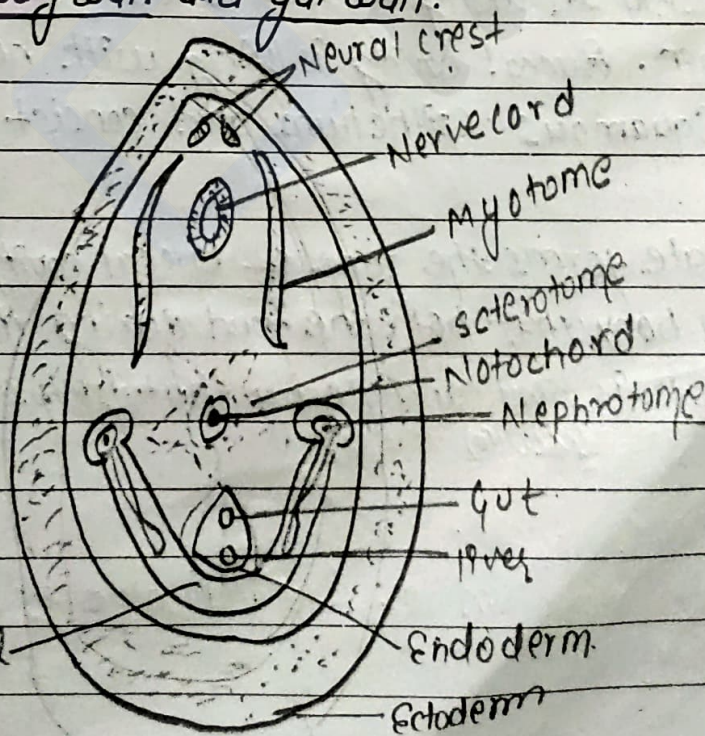 and gut wall.
Neural crest
Nerve cord
Myotome
Scterotome
Notochord
Nephrotome
Gut
liver
Endoderm.
Ectoderm